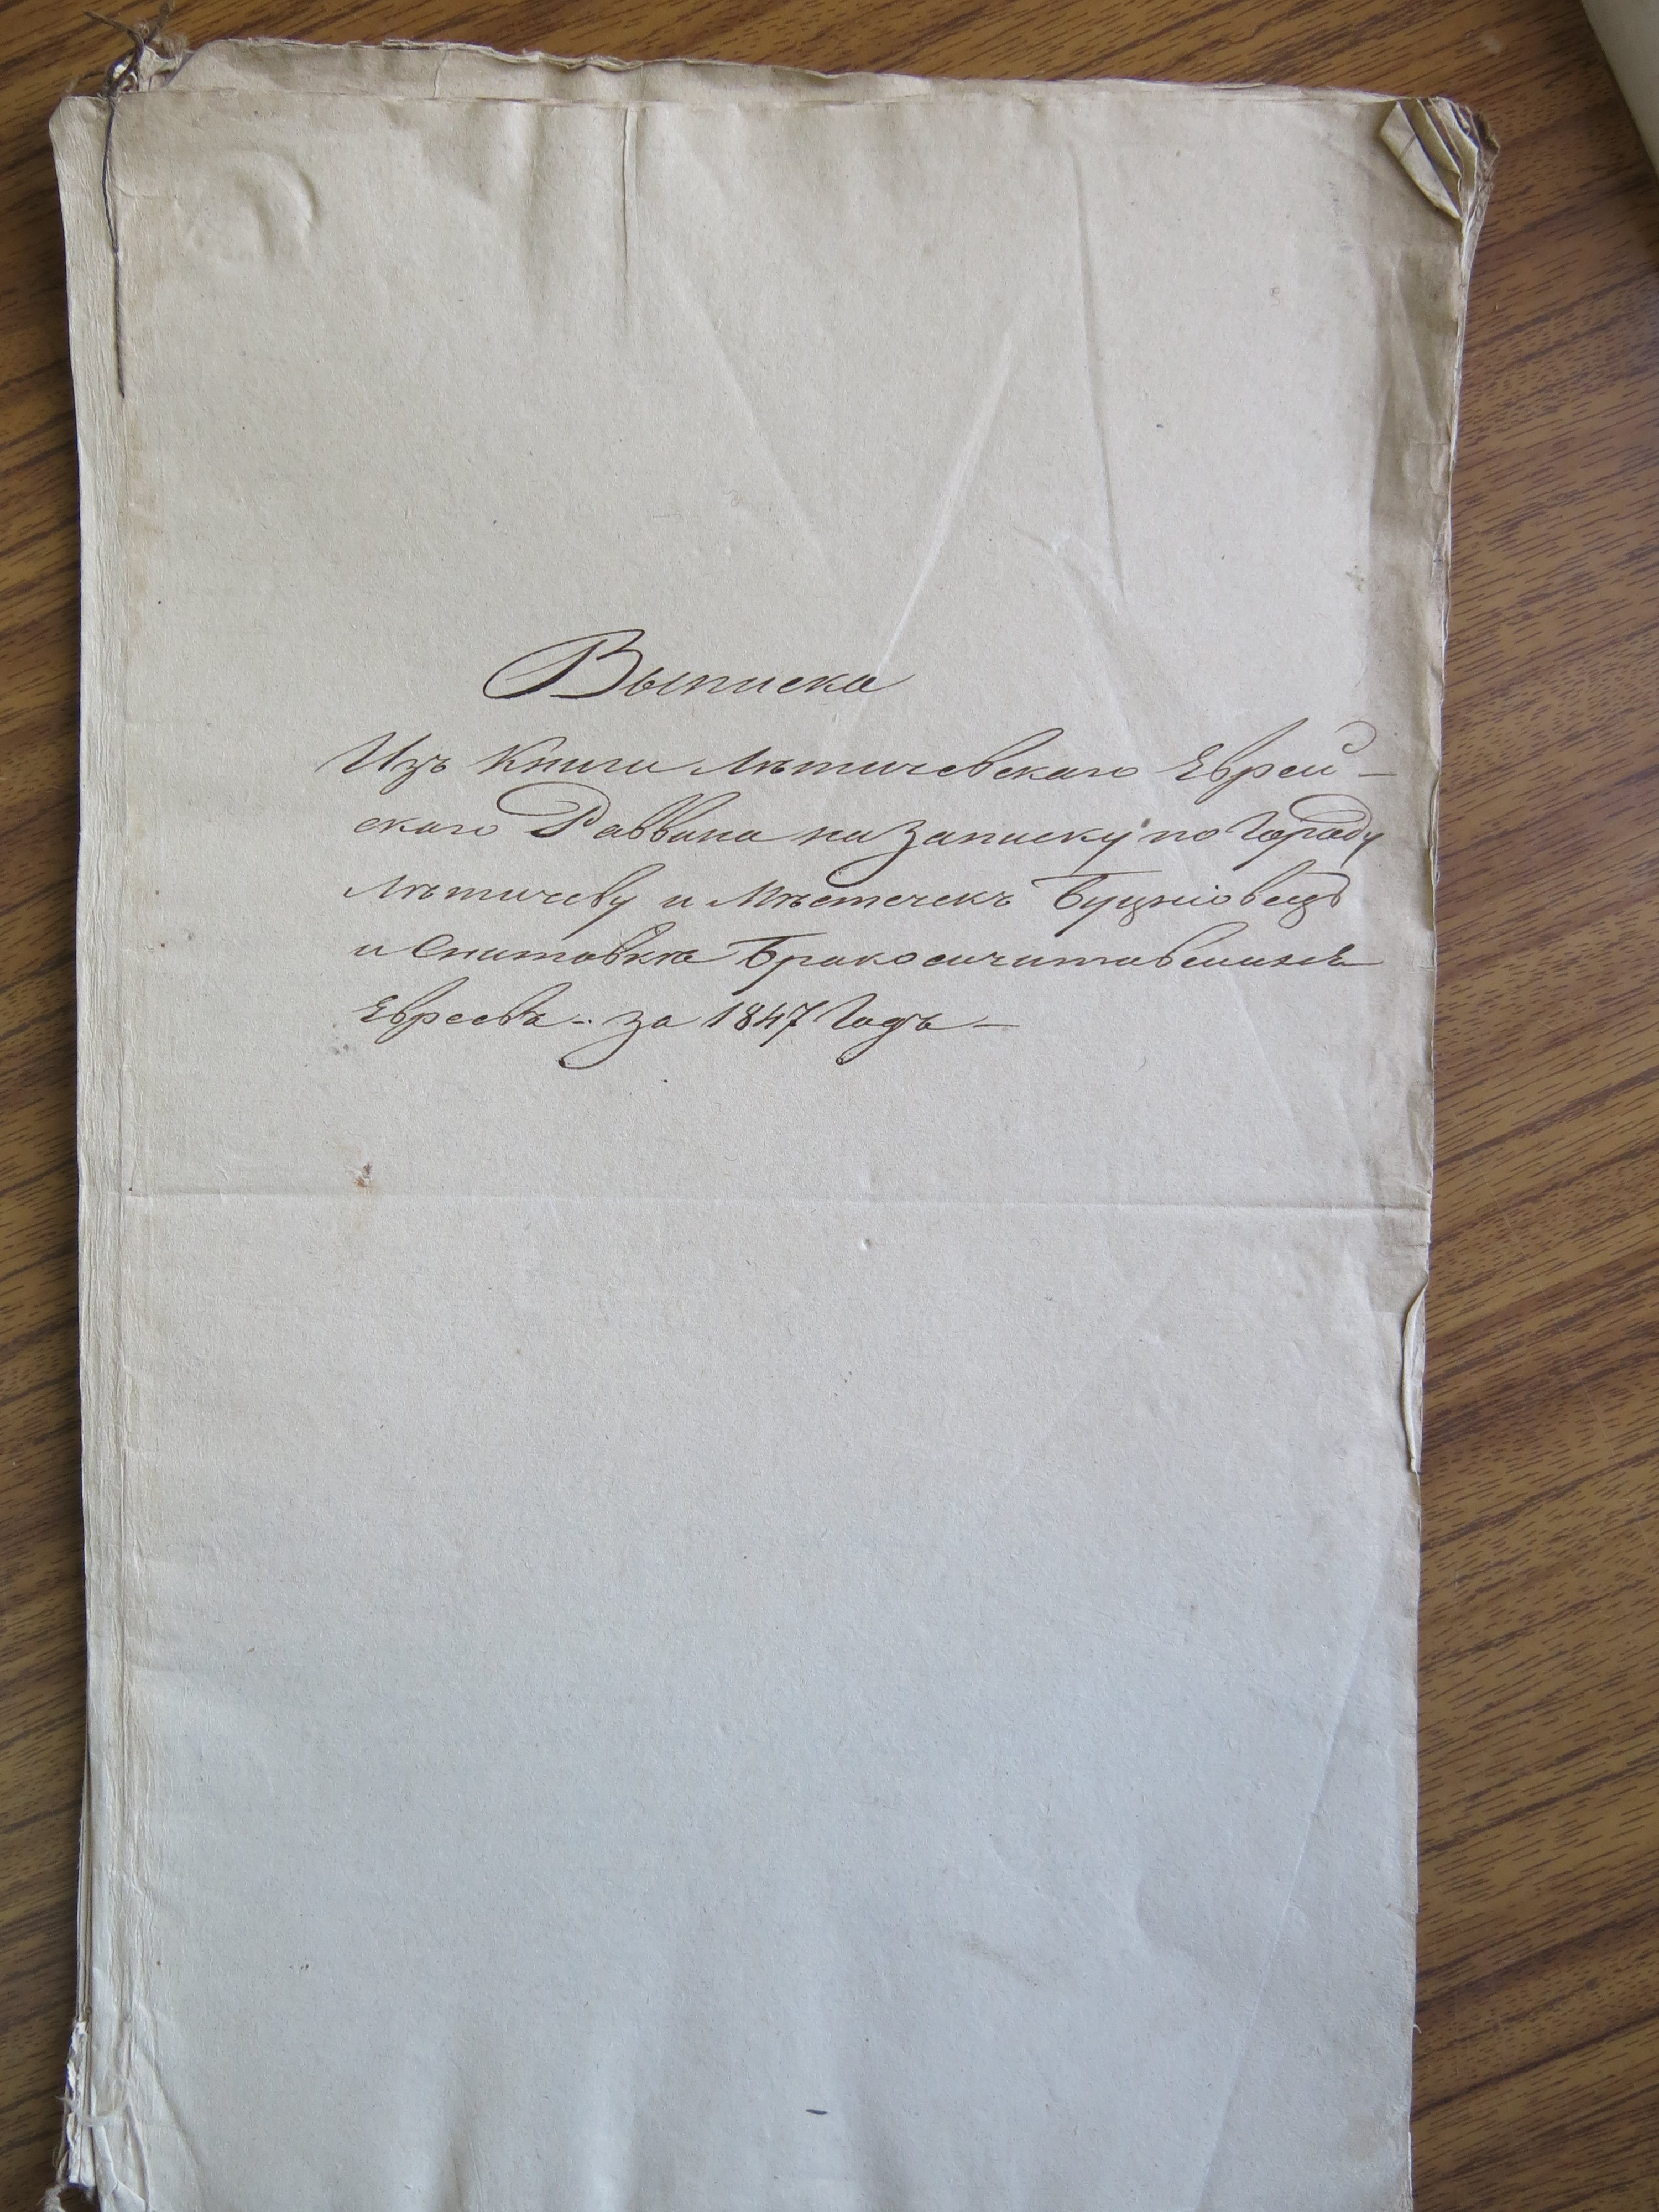 Выписка
Изъ Книги Лѣтичевскаго Еврей-
скаго Раввина на записку по Городу
Лѣтичеву и Мѣстечекъ Буцніовецъ
и Снитовкѣ Бракосичитавшихсь
Евреевъ .. за 1847 Годъ —